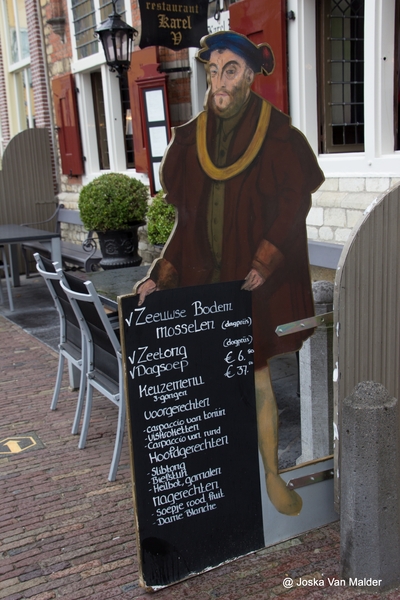 restaurant
Karel
V
√Zeeuwse Bodem
mosselen (dagprijs)
√Zeetong (dagprijs)
√Dagsoep € 6,50
Keuzemenu € 37,
3-gangen
Voorgerechten
-Carpaccio van tonijn
-Viskroketten
-Carpaccio van rund
Hoofdgerechten
-Slibtong
-Biefstuk
-Heilbot, garnalen
Nagerechten
-Soepje rood fruit
-Dame Blanche
@ Joska Van Malder